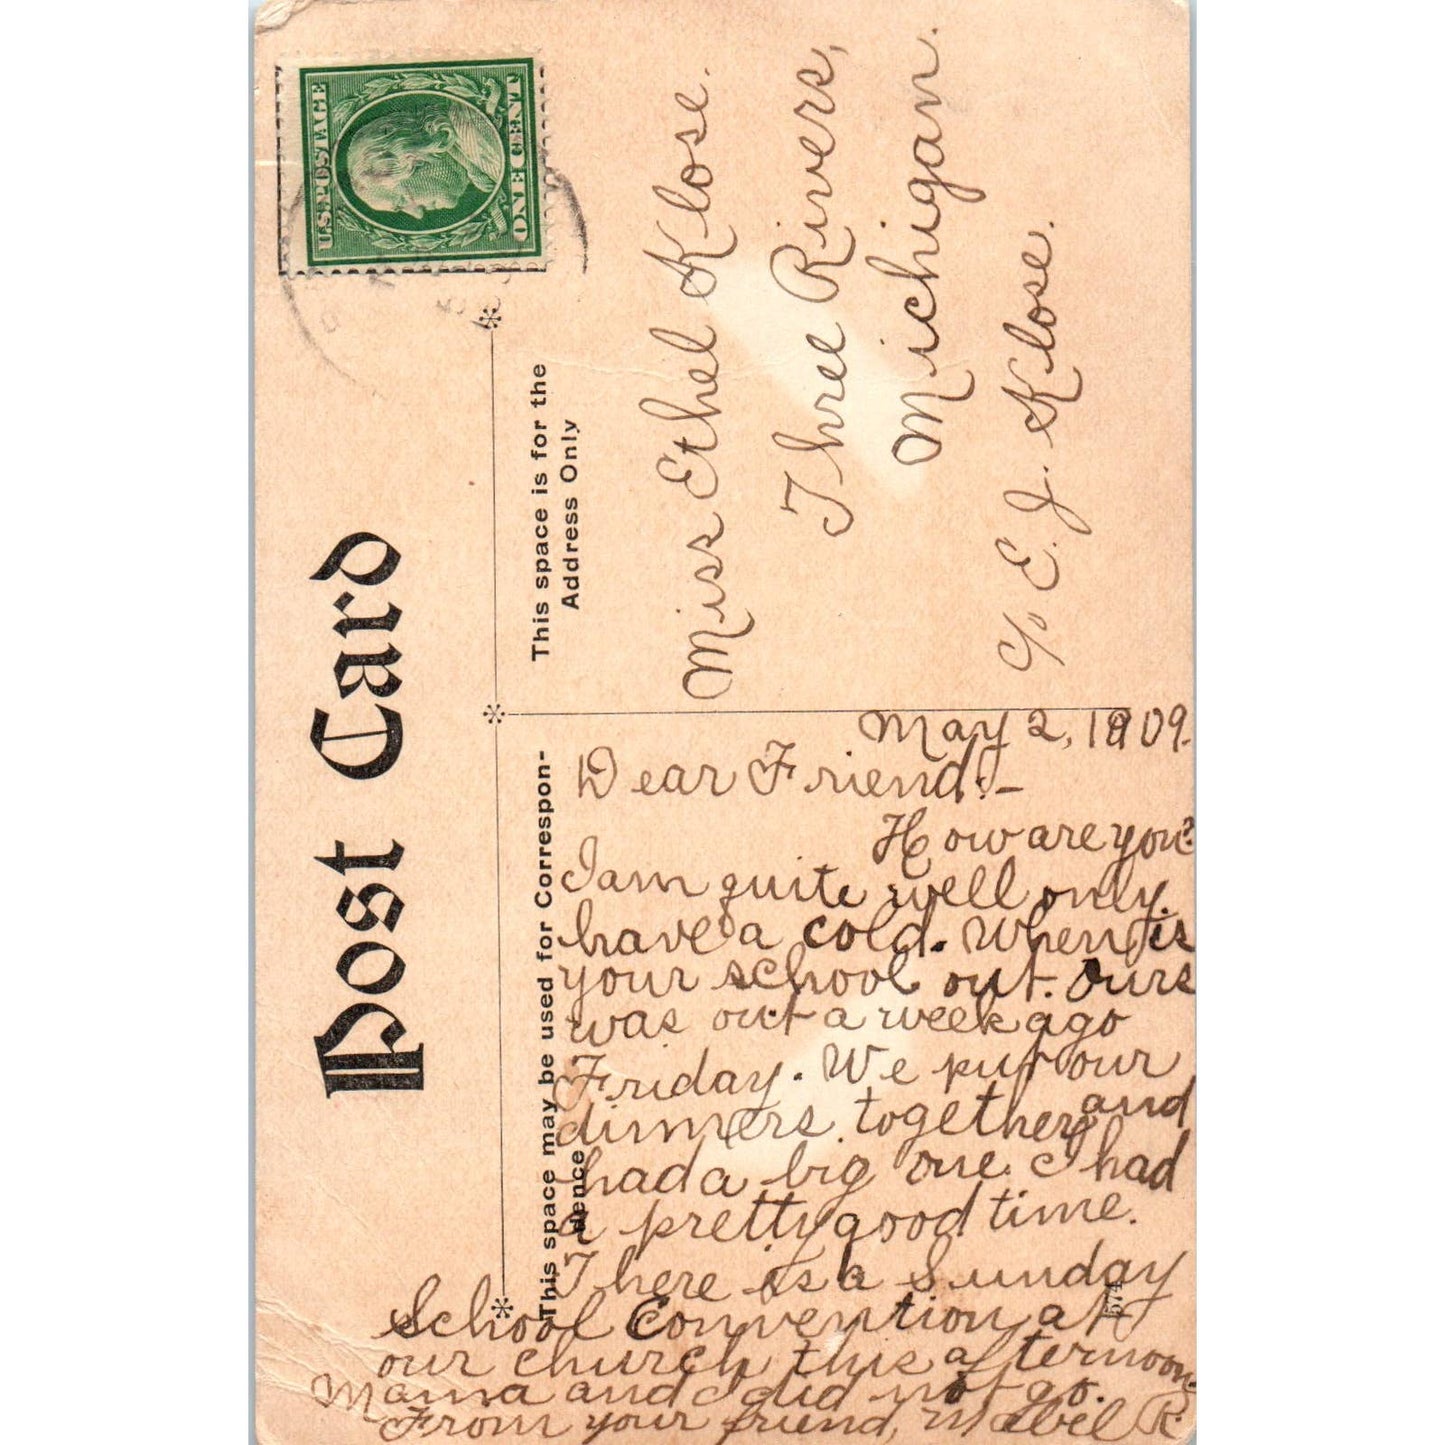 Post Card
U.S. POSTAGE
ONE CENT
This space is for the
Address Only
This space may be used for Correspon-
dence
Miss Ethel Klose.
Three Rivers,
Michigan.
c/o E. J. Klose.
May 2, 1909.
Dear Friend:-
How are you?
I am quite well only
have a cold. When is
your school out. Ours
was out a week ago
Friday. We put our
dinners together and
had a big one. I had
a pretty good time.
There is a Sunday
School Convention at
our church this afternoon
Mama and I did not go.
From your friend, Mabel R.
574